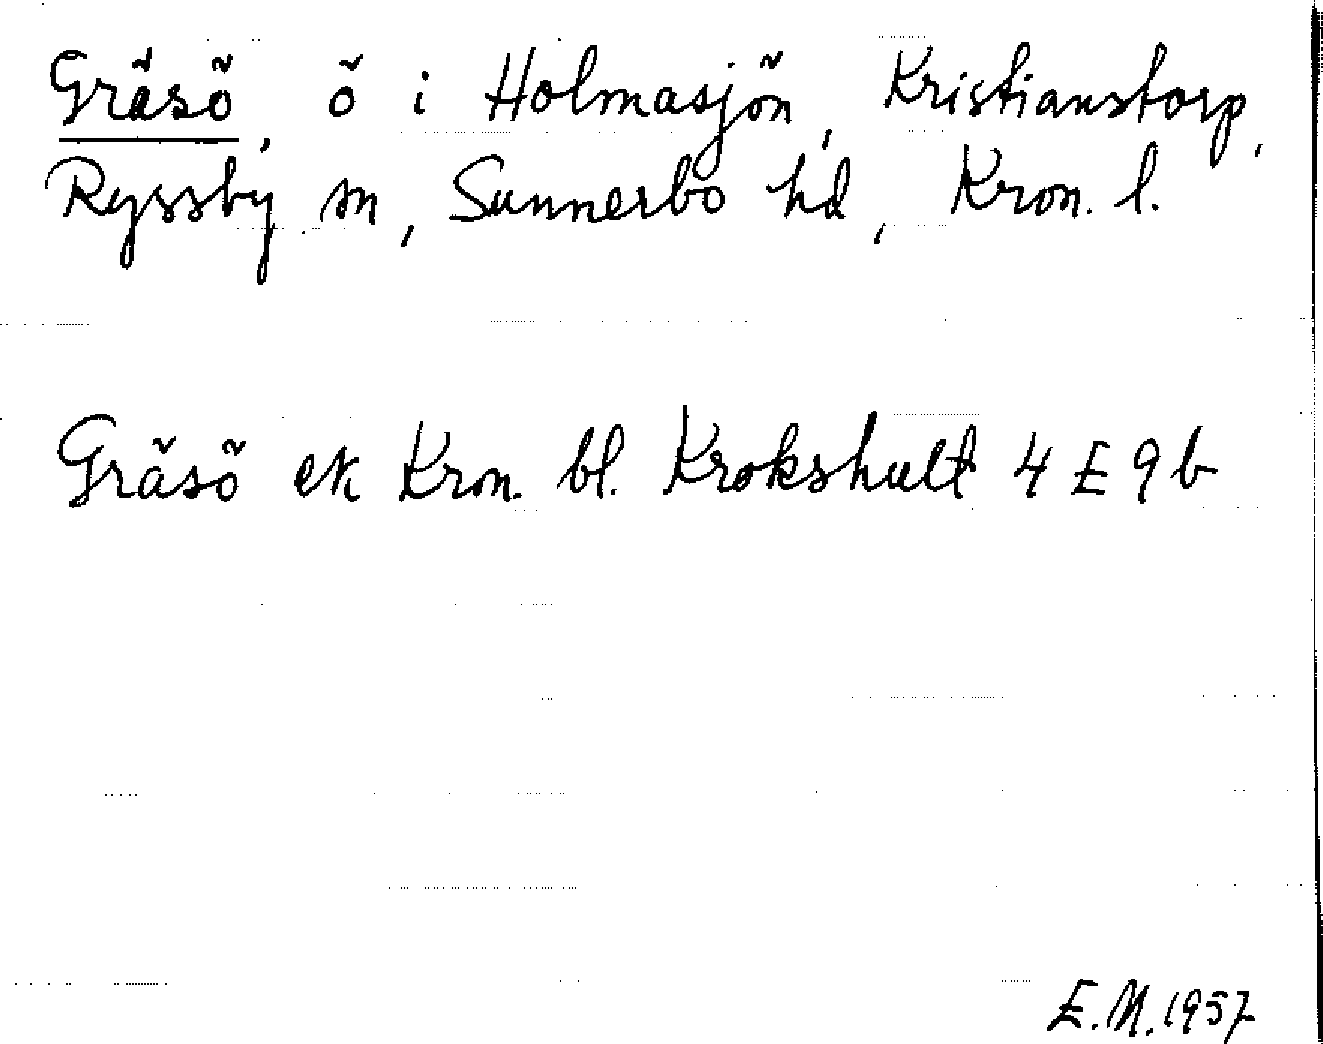 Gräsö, ö i Holmasjön, Kristianstorp,
Ryssby sn, Sunnerbo hd, Kron. l.
Gräsö ek Kron. bl. Krokshult 4 E 9 b
E.M. 1957